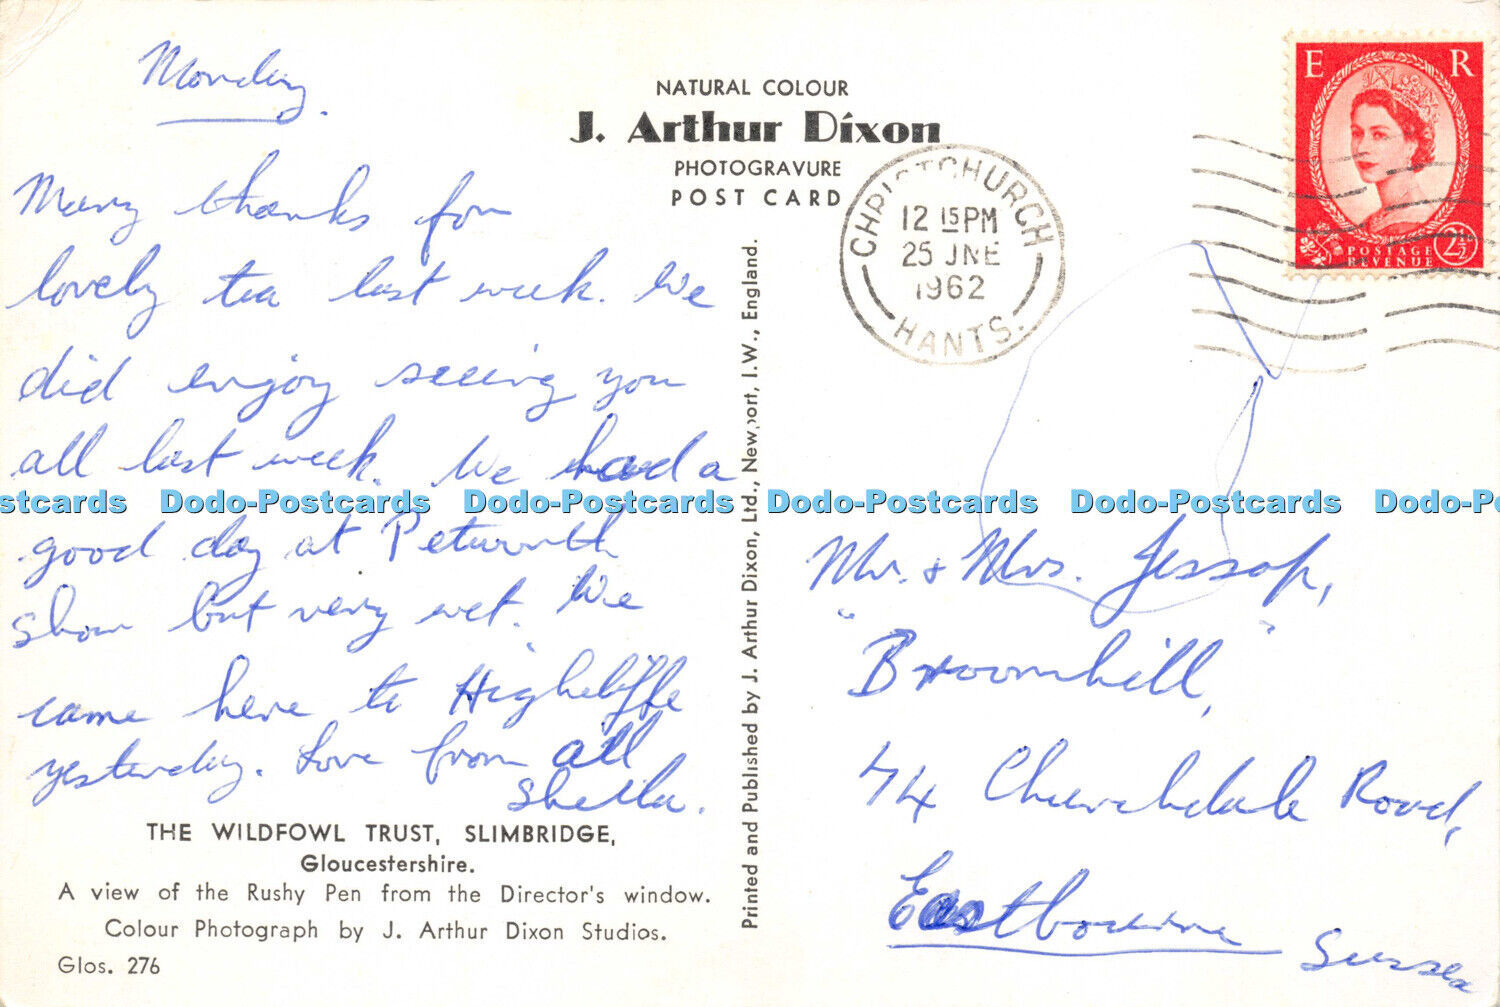 Monday.
Many thanks for
lovely tea last week. We
did enjoy seeing you
all last week. We had a
good day at Petworth
show but very wet. We
came here to Highcliffe
yesterday. Love from all
Sheila.
THE WILDFOWL TRUST, SLIMBRIDGE,
Gloucestershire.
A view of the Rushy Pen from the Director's window.
Colour Photograph by J. Arthur Dixon Studios.
Glos. 276
NATURAL COLOUR
J. Arthur Dixon
PHOTOGRAVURE
POST CARD
Printed and Published by J. Arthur Dixon, Ltd., Newport, I.W., England.
CHRISTCHURCH
12 15 PM
25 JNE
1962
HANTS.
E R
POSTAGE
REVENUE
2½
Mr. & Mrs. Jessop,
"Broomhill",
74 Churchdale Road,
Eastbourne
Sussex
Postcards Dodo-Postcards Dodo-Postcards Dodo-Postcards Dodo-Postcards Dodo-Po